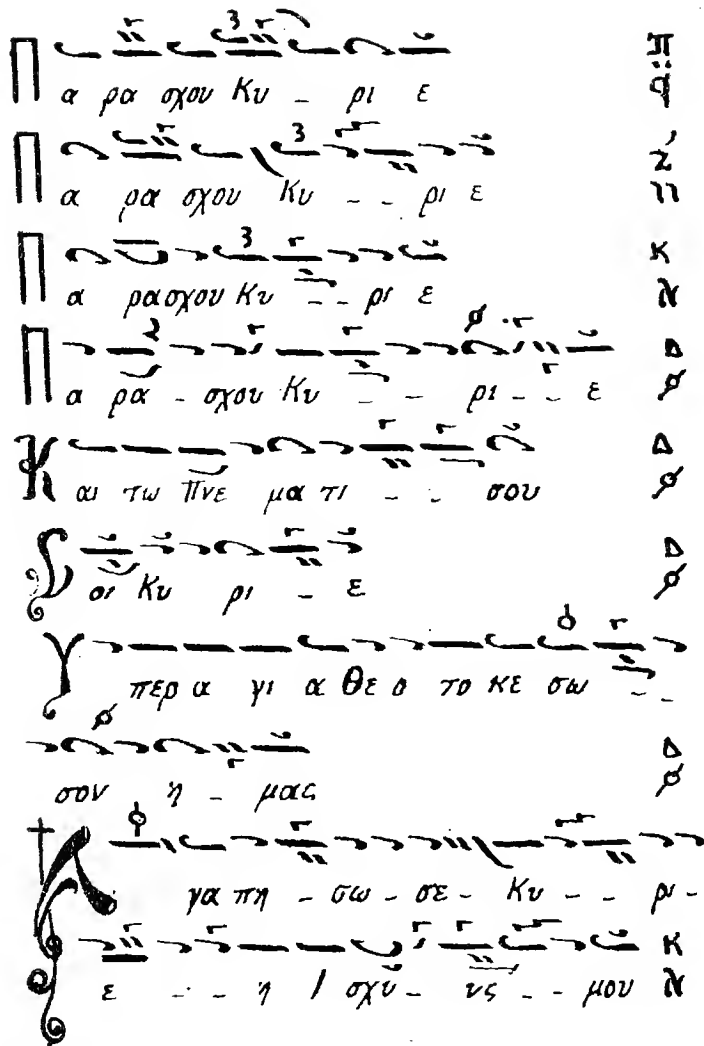 Π α ρα σχου Κυ _ ρι ε
Π α ρα σχου Κυ _ _ ρι ε
Π α ρασχου Κυ _ _ ρι ε
Π α ρα _ σχου Κυ _ _ ρι _ _ ε
Κ αι τω Πνε μα τι _ _ σου
Σ οι Κυ ρι _ ε
Υ περ α γι α Θε ο το κε σω _ _
σον ή _ μας
Α γα πη _ σω _ σε _ Κυ _ _ _ ρι _
ε _ _ ή Ι σχύ _ υς _ _ μου